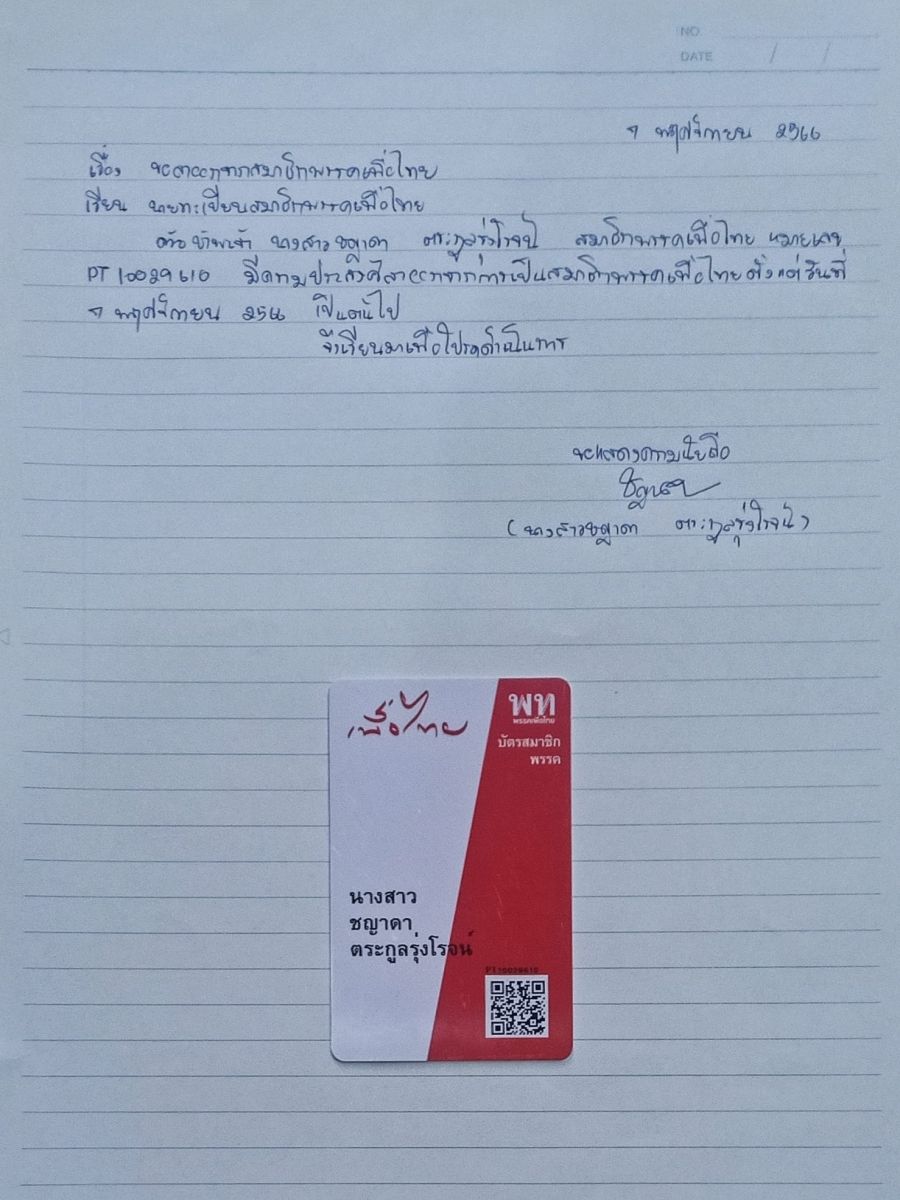 NO.
DATE / /
๑ พฤศจิกายน 2566
เรื่อง ขอลาออกจากสมาชิกพรรคเพื่อไทย
เรียน นายทะเบียนสมาชิกพรรคเพื่อไทย
ด้วยข้าพเจ้า นางสาวชญาดา ตระกูลรุ่งโรจน์ สมาชิกพรรคเพื่อไทย หมายเลข
PT 10029610 มีความประสงค์ลาออกจากการเป็นสมาชิกพรรคเพื่อไทย ตั้งแต่วันที่
๑ พฤศจิกายน 2566 เป็นต้นไป
จึงเรียนมาเพื่อโปรดดำเนินการ
ขอแสดงความนับถือ
(นางสาวชญาดา ตระกูลรุ่งโรจน์)
เพื่อไทย
พท
พรรคเพื่อไทย
บัตรสมาชิก
พรรค
นางสาว
ชญาดา
ตระกูลรุ่งโรจน์
PT10029610